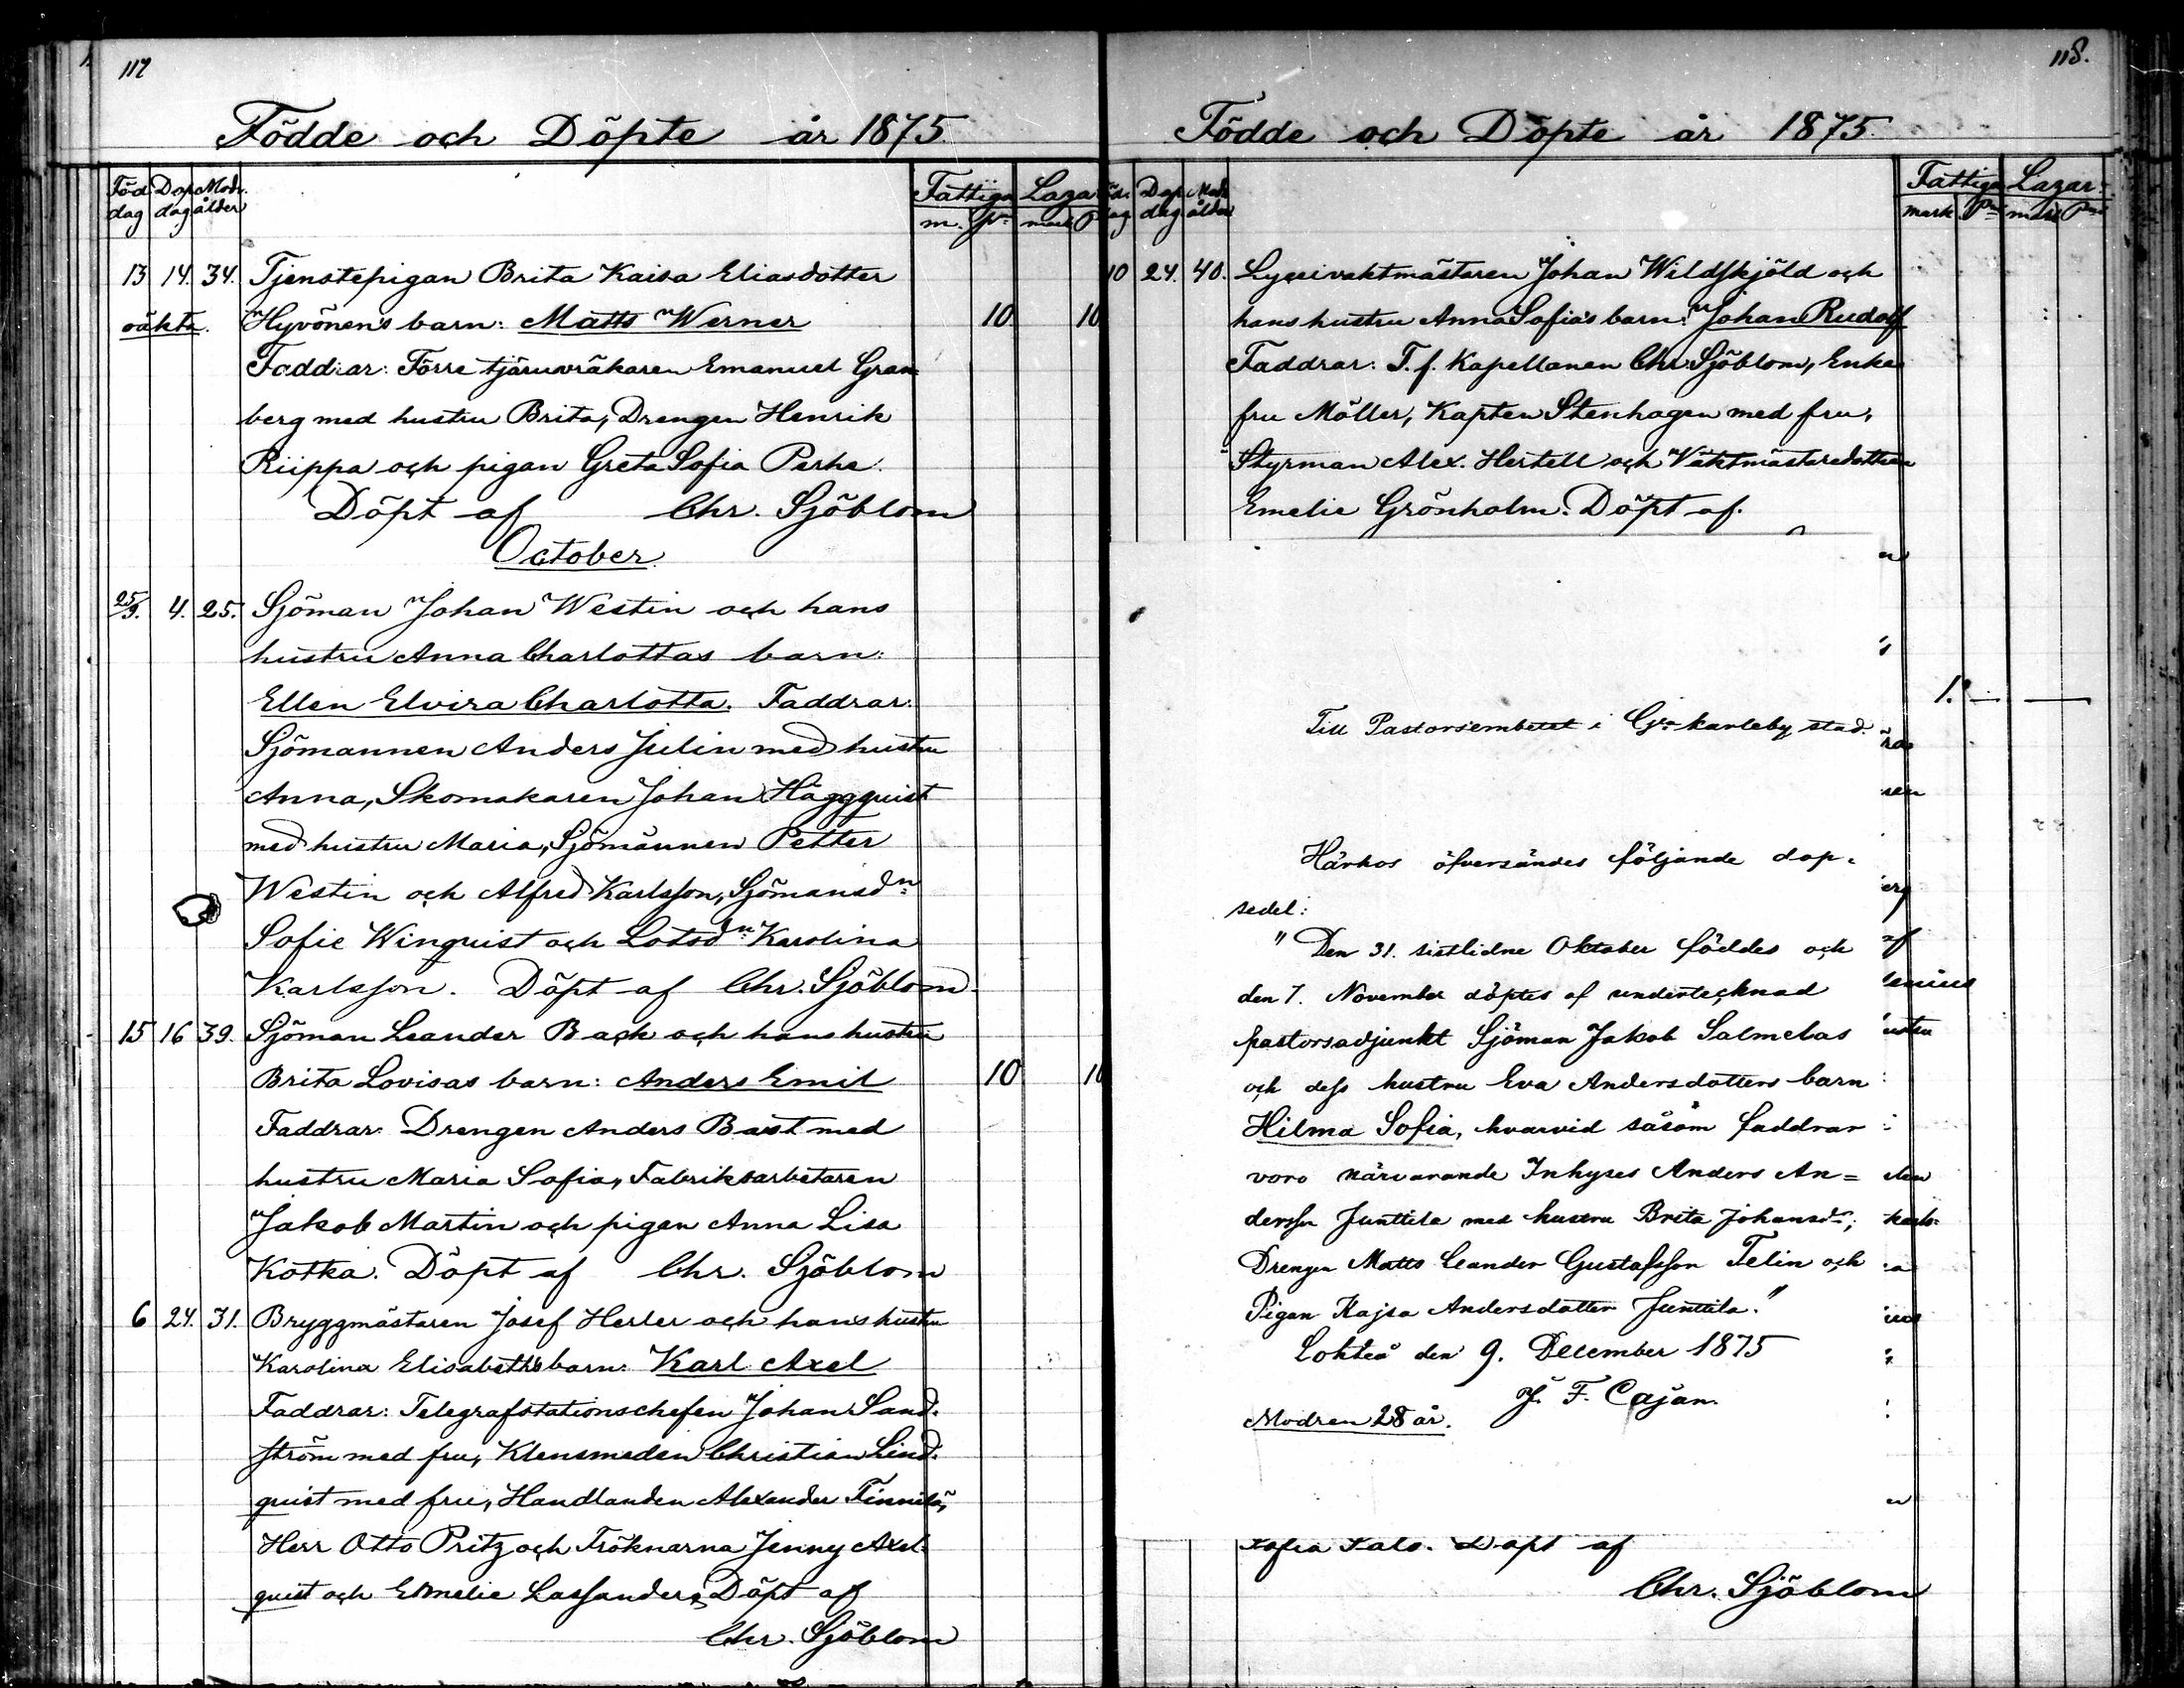 117
Födde och Döpte år 1875.
Föd. dag Dop dag Modr. ålder Fattiga m. Lazar mark
13 14. 34. Tjenstepigan Brita Kaisa Eliasdotter
oäkta. Hyvönens barn: Matts Werner 10 10
Faddrar: Förre tjäruvräkaren Emanuel Gran
berg med hustru Brita, Drengen Henrik
Riippa och pigan Greta Sofia Perhe.
Döpt af Chr. Sjöblom
October.
25/9. 4. 25. Sjöman Johan Westin och hans
hustru Anna Charlottas barn:
Ellen Elvira Charlotta. Faddrar:
Sjömannen Anders Julin med hustru
Anna, Skomakaren Johan Häggquist
med hustru Maria, Sjömännen Petter
Westin och Alfred Karlsson, Sjömansdn
Sofie Winquist och Lotsdn Karolina
Karlsson. Döpt af Chr. Sjöblom.
15 16 39. Sjöman Leander Back och hans hustru
Brita Lovisas barn: Anders Emil 10 10
Faddrar: Drengen Anders Bast med
hustru Maria Sofia, Fabriksarbetaren
Jakob Martin och pigan Anna Lisa
Kotka. Döpt af Chr. Sjöblom
6 24. 31. Bryggmästaren Josef Herler och hans hustru
Karolina Elisabeths barn: Karl Axel
Faddrar: Telegrafstationschefen Johan Sand-
ström med fru, Klensmeden Christian Lind-
quist med fru, Handlanden Alexander Finnilä,
Herr Otto Pritz och Fröknarna Jenny Axel-
quist och Emelie Lassander. Döpt af
Chr. Sjöblom
118.
Födde och Döpte år 1875.
Dop dag Modr ålder Fattiga mark Lazar mark
10 24. 40. Lyceivaktmästaren Johan Wildskjöld och
hans hustru Anna Sofias barn: Johan Rudolf
Faddrar: T. f. Kapellanen Chr. Sjöblom, Enke
fru Möller, Kapten Stenhagen med fru,
Styrman Alex. Hertell och Vaktmästaredottren
Emelie Grönholm. Döpt af.
1. — —
Till Pastorsembetet i Gla karleby stad.
Härhos öfversändes följande dop-
sedel:
"Den 31. sistlidne Oktober föddes och
den 7. November döptes af undertecknad
pastorsadjunkt Sjöman Jakob Salmelas
och dess hustru Eva Andersdotters barn
Hilma Sofia, hvarvid såsom faddrar
voro närvarande Inhyses Anders An=
dersson Junttila med hustru Brita Johansdr;
Drengen Matts Leander Gustafsson Telin och
Pigan Kajsa Andersdotter Junttila."
Lohteå den 9. December 1875
J. F. Cajan.
Modren 28 år.
Sofia Palo. Döpt af
Chr. Sjöblom